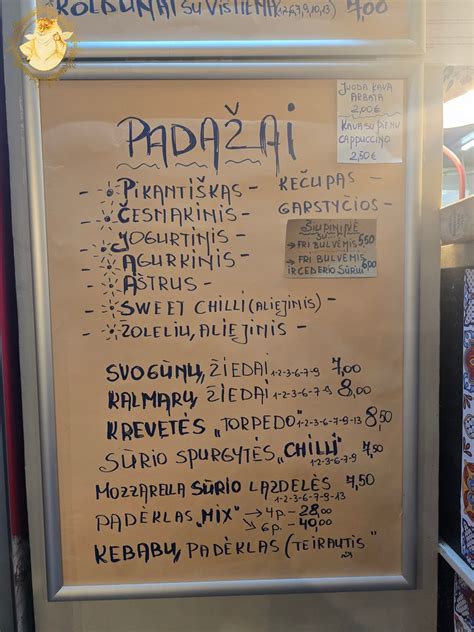 KOLDŪNAI SU VIŠTIENA (1,2,6,7,9,10,13) 7,00
JUODA KAVA
ARBATA
2,00€
KAVA SU PIENU
CAPPUCCINO
2,50€
PADAŽAI
- PIKANTIŠKAS -
- ČESNAKINIS -
- JOGURTINIS -
- AGURKINIS -
- AŠTRUS -
- SWEET CHILLI (ALIEJINIS) -
- ŽOLELIŲ, ALIEJINIS -
KEČUPAS -
GARSTYČIOS -
ŠIUPININĖ
SU...
→ FRI BULVĖMIS 5,50
→ FRI BULVĖMIS
IR ČEDERIO SŪRIU 6,00
SVOGŪNŲ ŽIEDAI 1-2-3-6-7-9 7,00
KALMARŲ ŽIEDAI 1-2-3-6-7-9 8,00
KREVETĖS „TORPEDO" 1-2-3-6-7-9-13 8,50
SŪRIO SPURGYTĖS „CHILLI" 7,50
1-2-3-6-7-9
MOZZARELLA SŪRIO LAZDELĖS 7,50
1-2-3-6-7-9-13
PADĖKLAS „MIX" → 4p. - 28,00
→ 6p. - 40,00
KEBABŲ PADĖKLAS (TEIRAUTIS